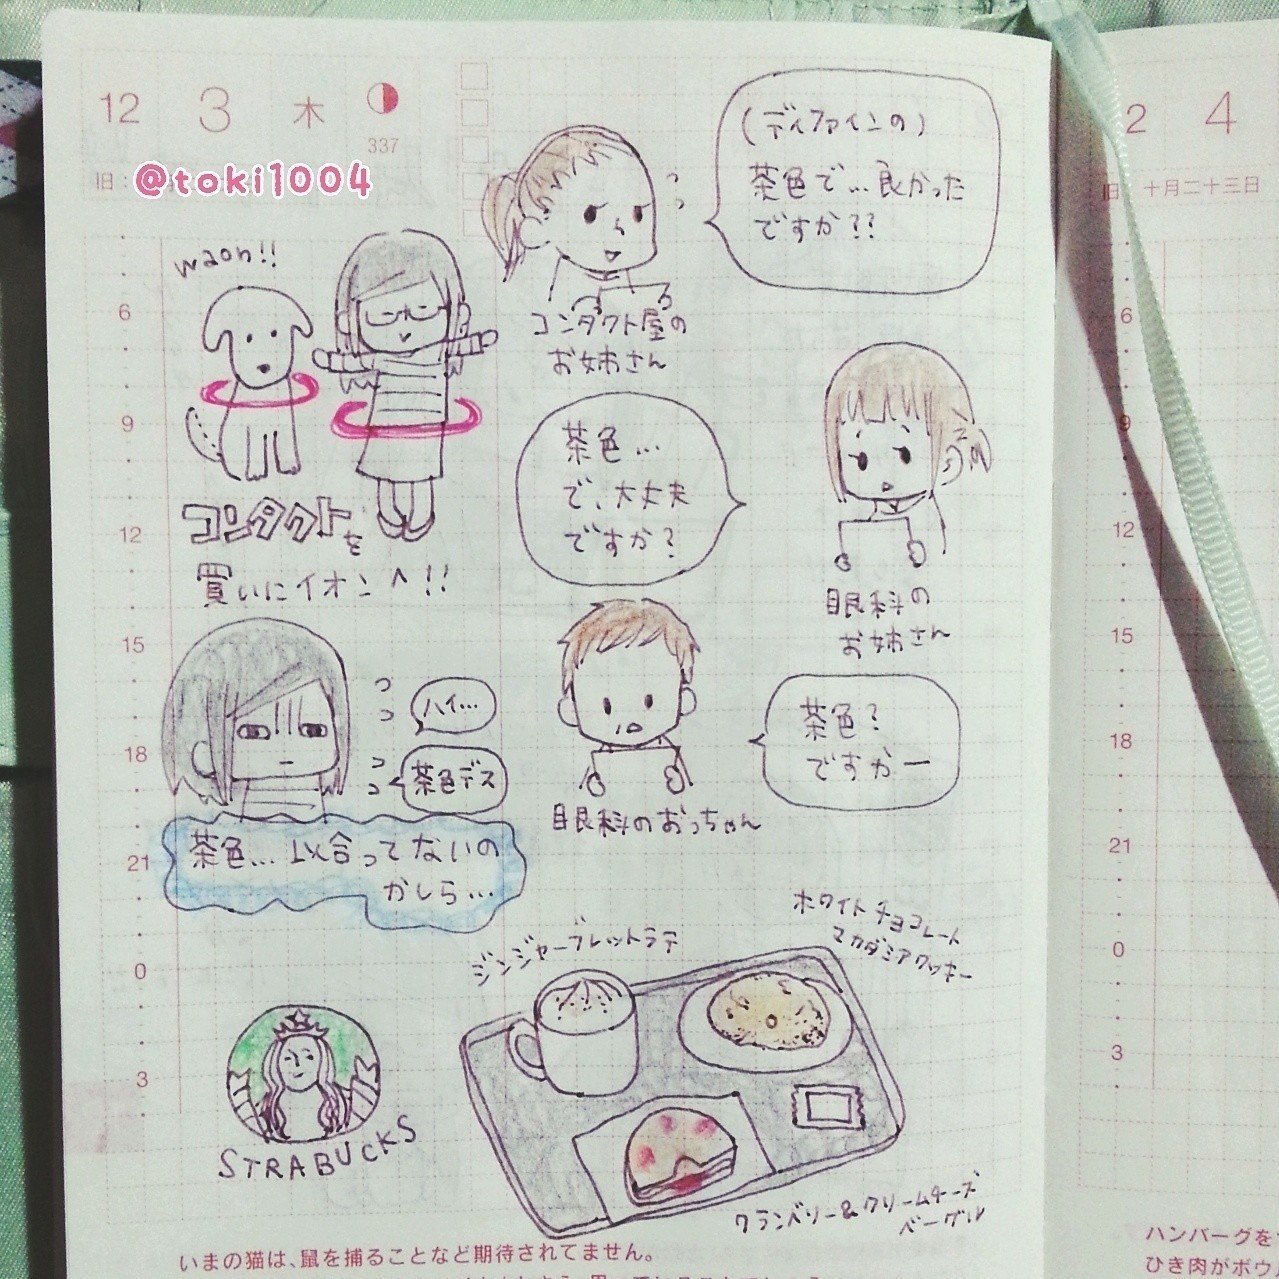 12 3 木
337
旧:
@toki1004
(ディファインの)
茶色で…良かった
ですか??
コンタクト屋の
お姉さん
waon!!
コンタクトを
買いにイオンへ!!
茶色…
で、大丈夫
ですか?
眼科の
お姉さん
茶色?
ですかー
眼科のおっちゃん
ハイ…
茶色デス
茶色…似合ってないの
かしら…
ジンジャーブレッドラテ
ホワイトチョコレート
マカダミアクッキー
STRABUCKS
クランベリー&クリームチーズ
ベーグル
6
9
12
15
18
21
0
3
いまの猫は、鼠を捕ることなど期待されてません。
2 4
旧 十月二十三日
6
9
12
15
18
21
0
3
ハンバーグを
ひき肉がボウ